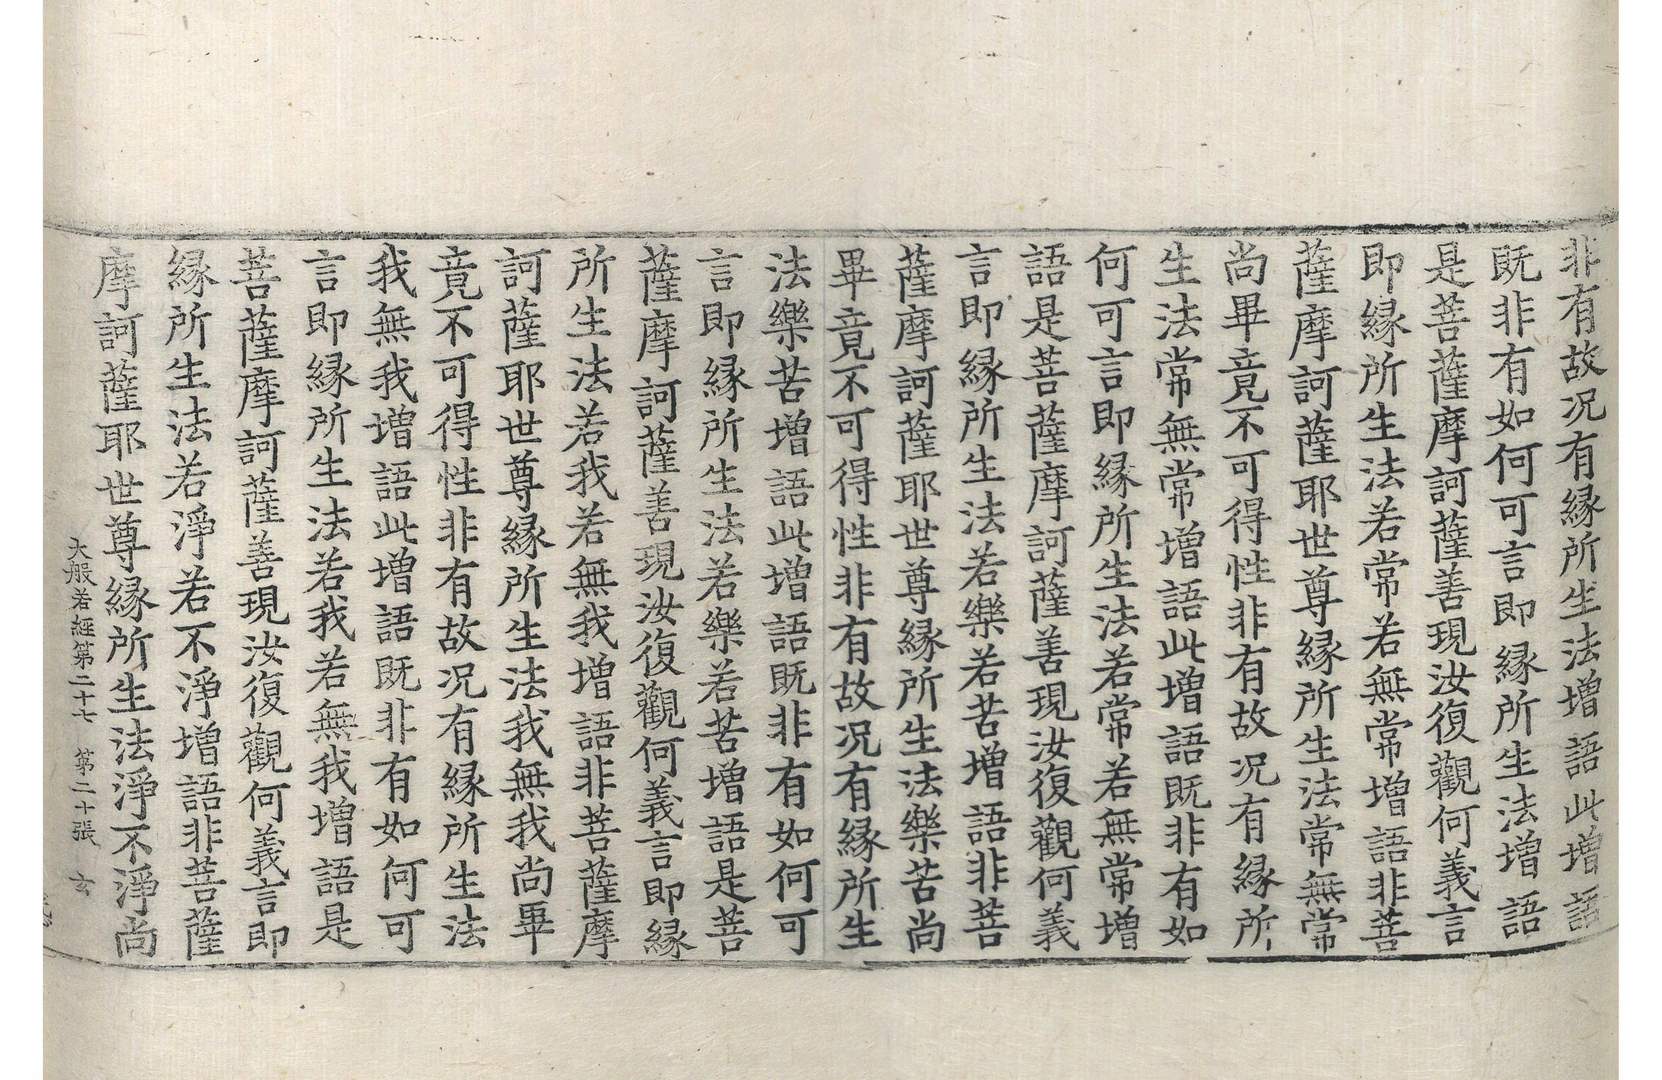 非有故况有縁所生法增語此增語
既非有如何可言即縁所生法增語
是菩薩摩訶薩善現汝復觀何義言
即縁所生法若常若無常增語非菩
薩摩訶薩耶世尊縁所生法常無常
尚畢竟不可得性非有故况有縁所
生法常無常增語此增語既非有如
何可言即縁所生法若常若無常增
語是菩薩摩訶薩善現汝復觀何義
言即縁所生法若樂若苦增語非菩
薩摩訶薩耶世尊縁所生法樂苦尚
畢竟不可得性非有故况有縁所生
法樂苦增語此增語既非有如何可
言即縁所生法若樂若苦增語是菩
薩摩訶薩善現汝復觀何義言即縁
所生法若我若無我增語非菩薩摩
訶薩耶世尊縁所生法我無我尚畢
竟不可得性非有故况有縁所生法
我無我增語此增語既非有如何可
言即縁所生法若我若無我增語是
菩薩摩訶薩善現汝復觀何義言即
縁所生法若淨若不淨增語非菩薩
摩訶薩耶世尊縁所生法淨不淨尚
大般若經第二十七 第二十張 玄